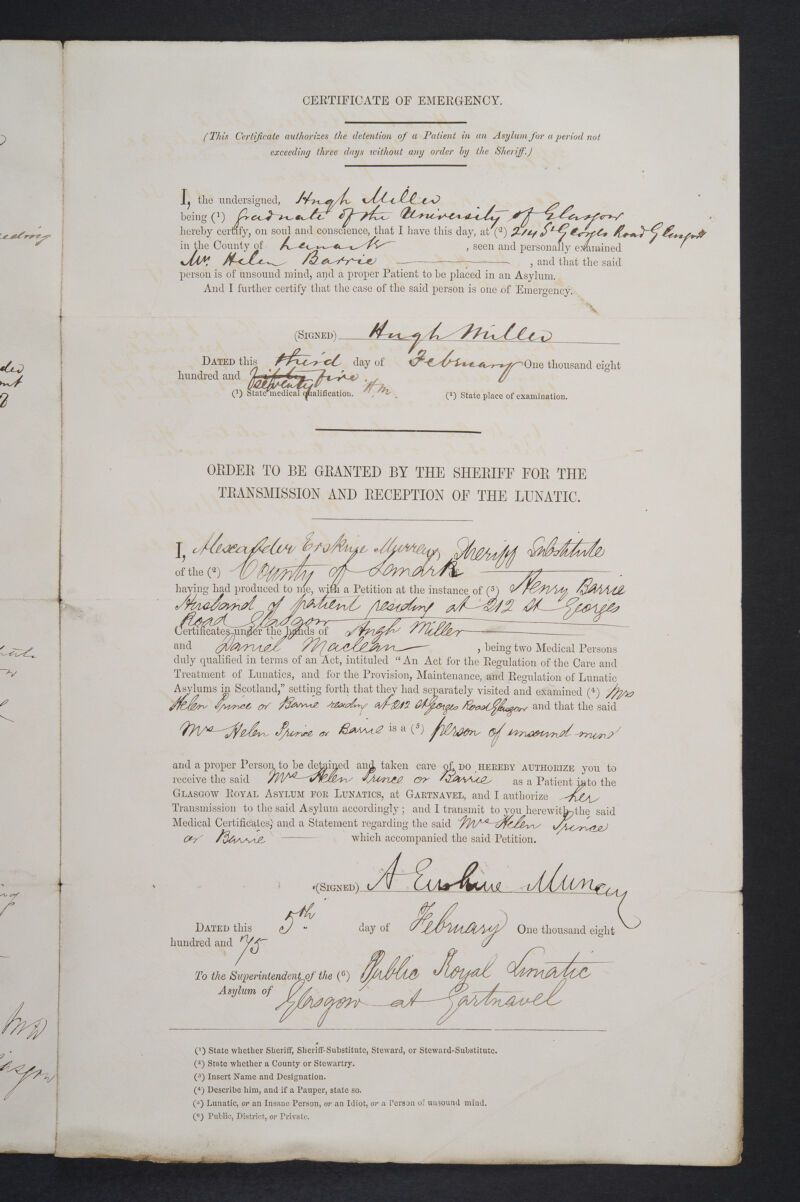 CERTIFICATE OF EMERGENCY.
(This Certificate authorizes the detention of a Patient in an Asylum for a period not
exceeding three days without any order by the Sheriff.)
I, the undersigned, Hugh Miller
being (¹) Graduate of the University of Glasgow
hereby certify, on soul and conscience, that I have this day, at (²) 214 St Georges Road Glasgow
in the County of Lanark , seen and personally examined
Mrs Helen Barrie , and that the said
person is of unsound mind, and a proper Patient to be placed in an Asylum.
And I further certify that the case of the said person is one of Emergency.
(SIGNED) Hugh Miller
DATED this third day of February One thousand eight
hundred and seventy five H.M.
(¹) State medical qualification. (²) State place of examination.
ORDER TO BE GRANTED BY THE SHERIFF FOR THE
TRANSMISSION AND RECEPTION OF THE LUNATIC.
I, Alexander Erskine Murray, Sheriff Substitute
of the (²) County of Lanark
having had produced to me, with a Petition at the instance of (³) Henry Barrie
Husband of patient residing at 212 St Georges
Road Glasgow
Certificates under the hands of Hugh Miller
and Daniel Maclean , being two Medical Persons
duly qualified in terms of an Act, intituled "An Act for the Regulation of the Care and
Treatment of Lunatics, and for the Provision, Maintenance, and Regulation of Lunatic
Asylums in Scotland," setting forth that they had separately visited and examined (⁴) Mrs
Helen Prince or Barrie residing at 212 St Georges Road Glasgow and that the said
Mrs Helen Prince or Barrie is a (⁵) person of unsound mind
and a proper Person to be detained and taken care of, DO HEREBY AUTHORIZE you to
receive the said Mrs Helen Prince or Barrie as a Patient into the
GLASGOW ROYAL ASYLUM FOR LUNATICS, at GARTNAVEL, and I authorize her
Transmission to the said Asylum accordingly; and I transmit to you herewith the said
Medical Certificates, and a Statement regarding the said Mrs Helen Prince
or Barrie which accompanied the said Petition.
(SIGNED) A Erskine Murray
DATED this 5th day of February One thousand eight
hundred and 75
To the Superintendent of the (⁶) Public Royal Lunatic
Asylum of Glasgow at Gartnavel
(¹) State whether Sheriff, Sheriff-Substitute, Steward, or Steward-Substitute.
(²) State whether a County or Stewartry.
(³) Insert Name and Designation.
(⁴) Describe him, and if a Pauper, state so.
(⁵) Lunatic, or an Insane Person, or an Idiot, or a Person of unsound mind.
(⁶) Public, District, or Private.